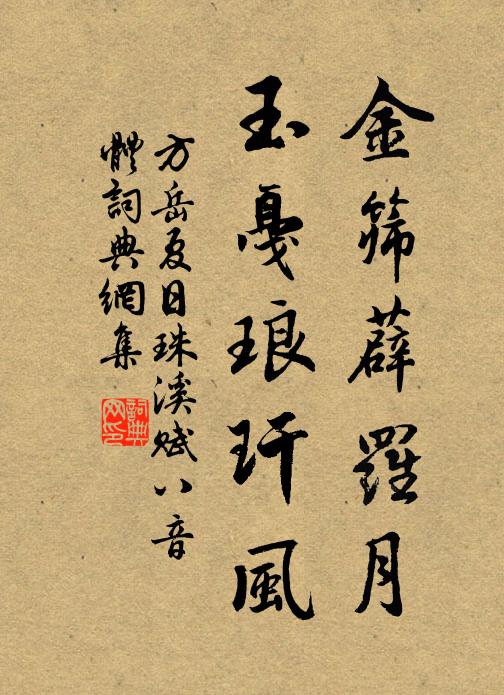 金篩薜羅月
玉戛琅玕風
方岳夏日珠溪賦八音
體詞典網集
詞典網印